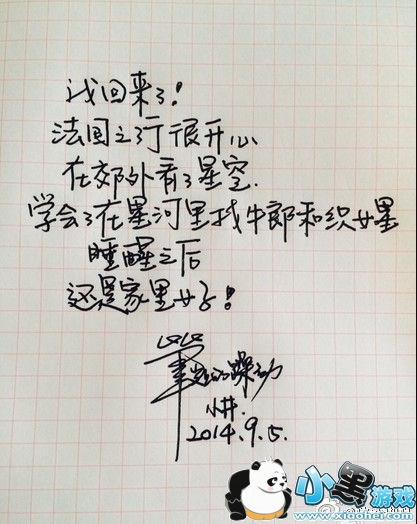 我回来了！
法国之行很开心
在郊外看了星空.
学会了在星河里找牛郎和织女星
睡醒之后
还是家里好！
笔尖的躁动
小井.
2014.9.5.
小黑游戏
www.xiaohei.com